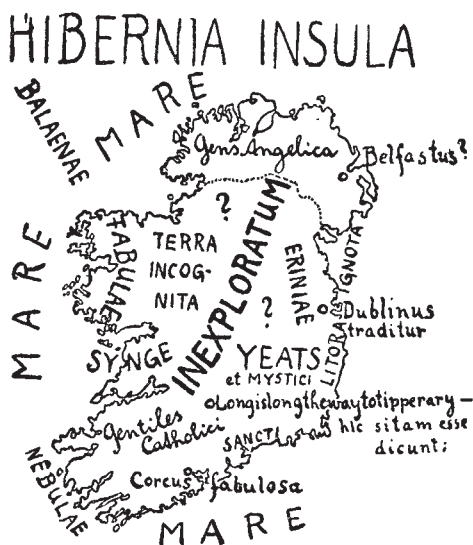 HIBERNIA INSULA
BALAENAE
MARE
Gens Angelica
Belfastus?
?
MARE
FABULAE
TERRA
INCOG-
NITA
INEXPLORATUM
ERINIAE
LITORA IGNOTA
?
Dublinus
traditur
SYNGE
YEATS
et MYSTICI
Longislongthewaytotipperary –
hic sitam esse
dicunt;
Gentiles
Catholici
SANCTI
NEBULAE
Corcus fabulosa
MARE